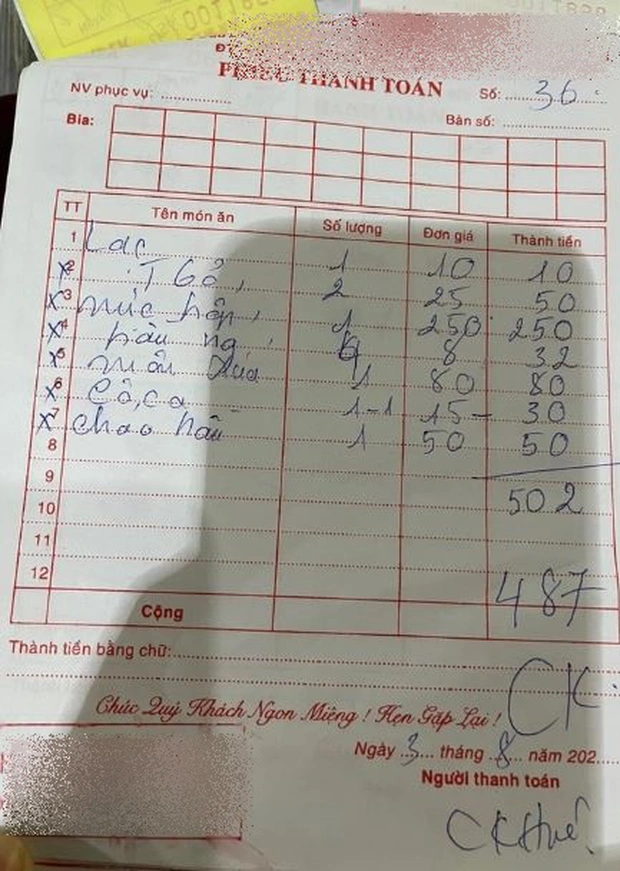 PHIẾU THANH TOÁN
NV phục vụ: Số: 36
Bia: Bàn số:
TT Tên món ăn Số lượng Đơn giá Thành tiền
1 Lạc 1 10 10
x 2 2 25 50
x 3 mực hấp, 1 250 250
x 4 hàu 4 8 32
x 5 1 80 80
x 6 Cô, ca 1-1 15- 30
x 7 cháo hàu 1 50 50
8
9 502
10
11
12 487
Cộng
Thành tiền bằng chữ:
CK
Chúc Quý Khách Ngon Miệng ! Hẹn Gặp Lại !
Ngày 3 tháng 8 năm 202
Người thanh toán
CK Huế